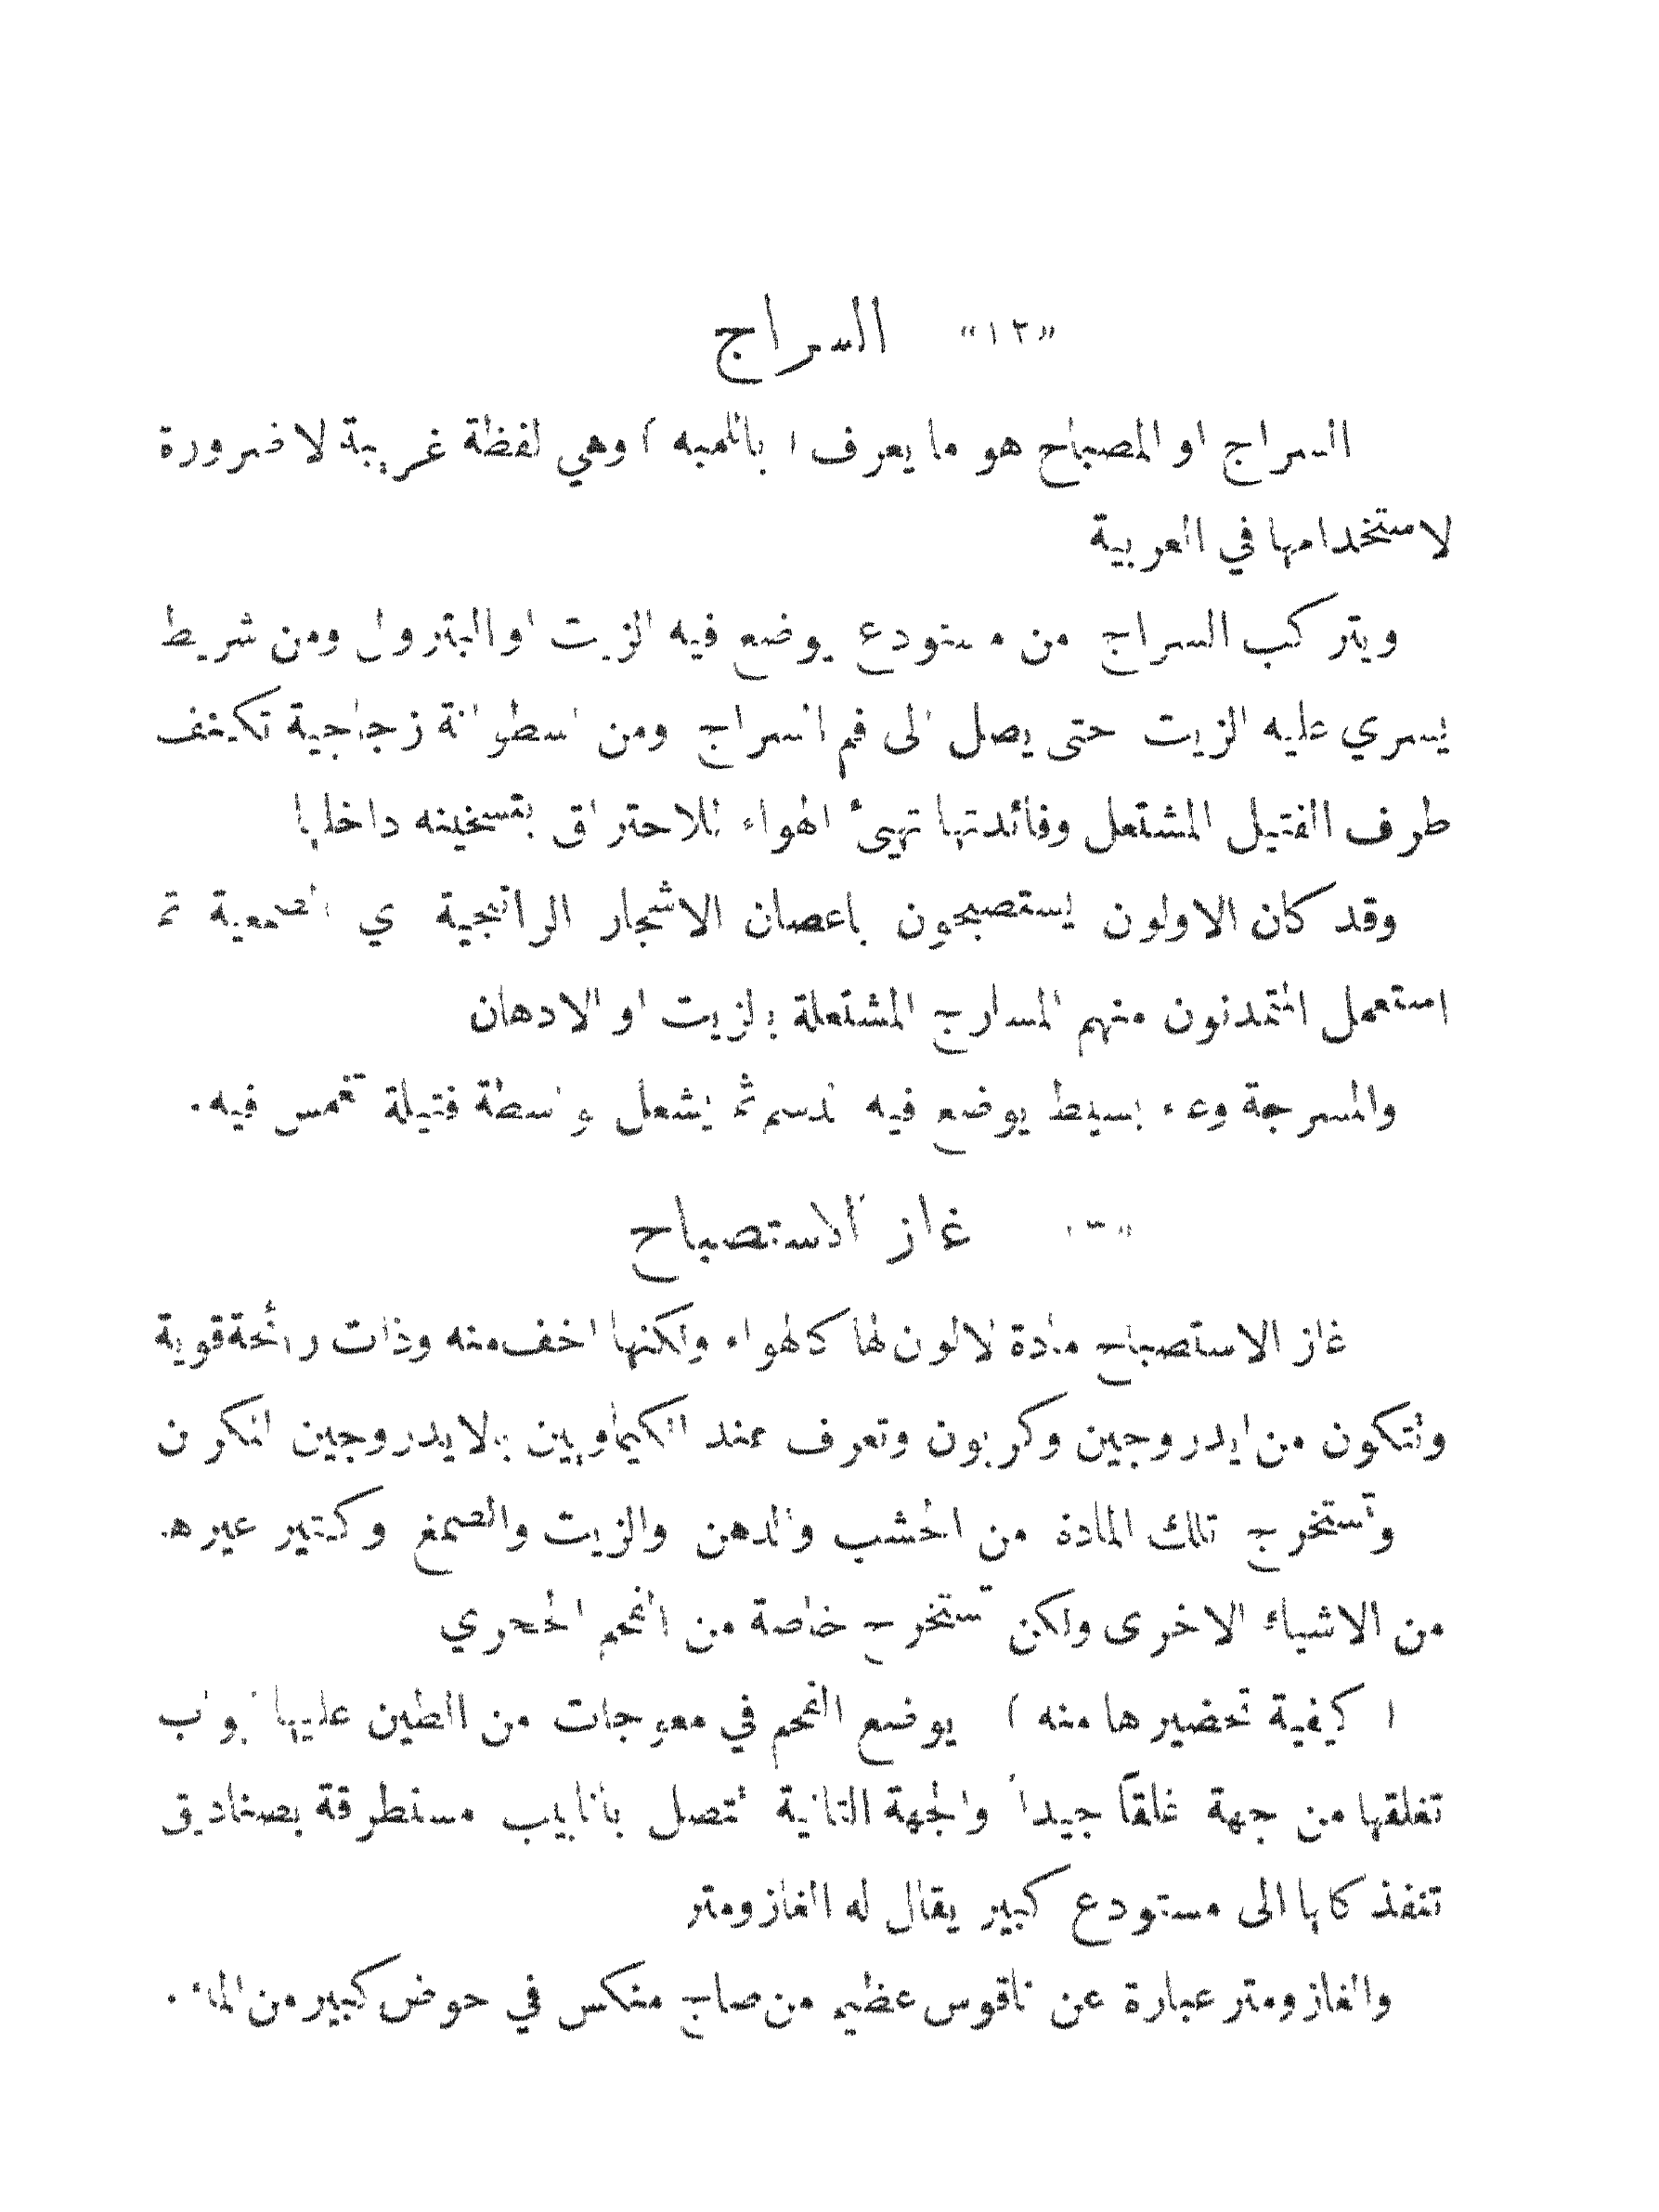 «١٢» السراج
السراج او المصباح هو ما يعرف ( باللمبه ) وهي لفظة غريبة لا ضرورة
لاستخدامها في العربية
ويتركب السراج من مستودع يوضع فيه الزيت او البترول ومن شريط
يسري عليه الزيت حتى يصل الى فم السراج ومن اسطوانة زجاجية تكتنف
طرف الفتيل المشتعل وفائدتها تهيئ الهواء للاحتراق بتسخينه داخلها
وقد كان الاولون يستصبحون باغصان الاشجار الراتنجية اي الصمغية ثم
استعمل المتمدنون منهم المسارج المشتعلة بالزيت او الادهان
والمسرجة وعاء بسيط يوضع فيه الدسم ثم يشعل بواسطة فتيلة تغمس فيه .
غاز الاستصباح
غاز الاستصباح مادة لا لون لها كالهواء ولكنها اخف منه وذات رائحة قوية
وتتكون من ايدروجين وكربون وتعرف عند الكيماويين بالايدروجين المكربن
وتستخرج تلك المادة من الخشب والدهن والزيت والصمغ وكثير غيرها
من الاشياء الاخرى ولكن تستخرج خاصة من الفحم الحجري
( كيفية تحضيرها منه ) يوضع الفحم في معوجات من الطين عليها ابواب
تغلقها من جهة غلقاً جيداً والجهة الثانية تتصل بانابيب مستطرقة بصناديق
تنفذ كلها الى مستودع كبير يقال له الغازومتر
والغازومتر عبارة عن ناقوس عظيم من صاج منكس في حوض كبير من الماء .